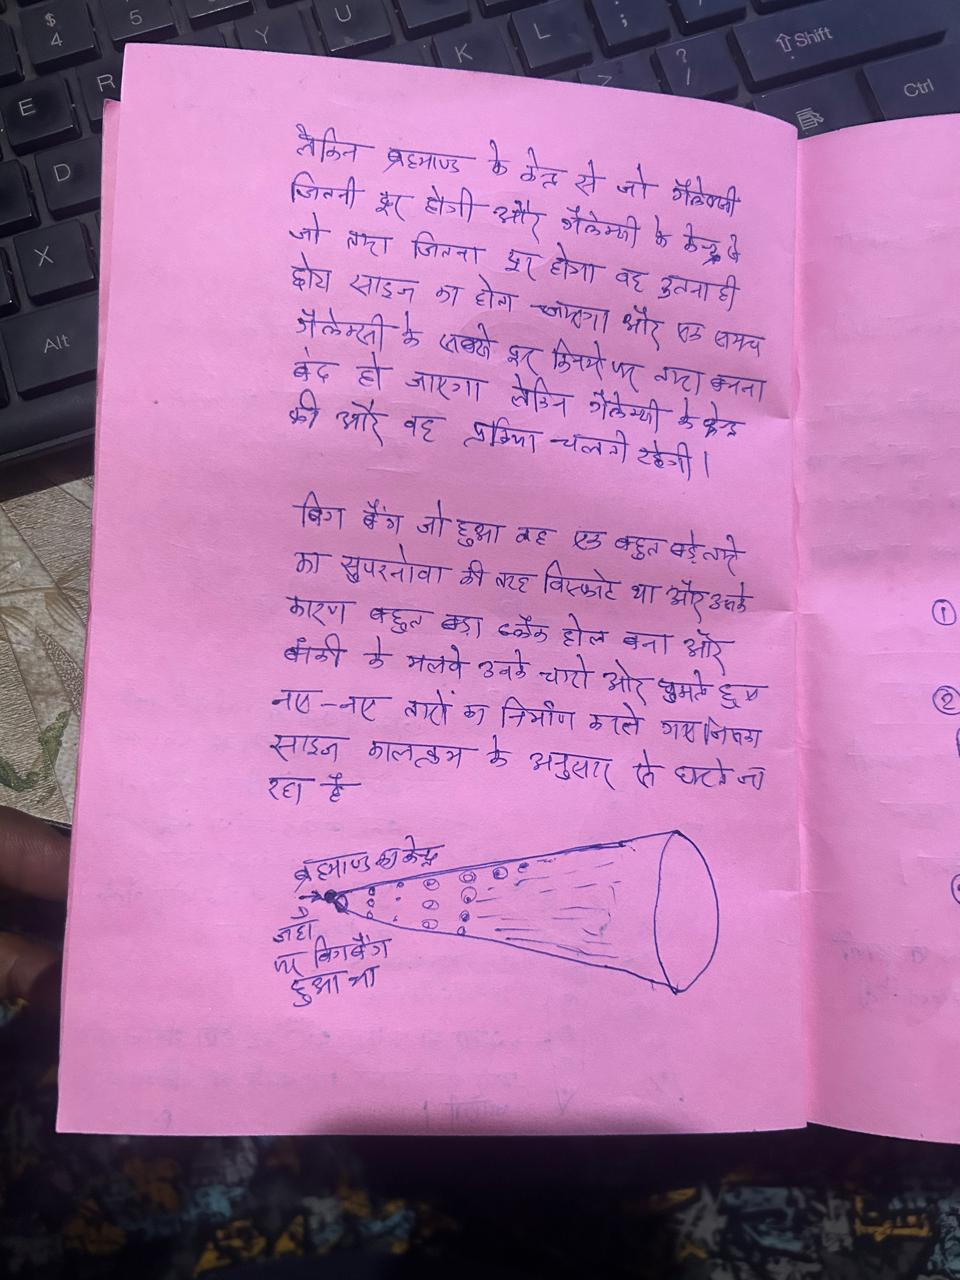 $
4
5
Y
U
:
;
⇧ Shift
E
R
K
L
>
?
/
Ctrl
D
X
Alt
लेकिन ब्रह्माण्ड के केन्द्र से जो गैलेक्सी
जितनी दूर होगी और गैलेक्सी के केन्द्र से
जो तारा जितना दूर होगा वह उतना ही
छोटा साइज का होता जाएगा और एक समय
गैलेक्सी के सबसे दूर किनारे पर तारा बनना
बंद हो जाएगा लेकिन गैलेक्सी के केन्द्र
की और वह प्रक्रिया चलती रहेगी।
बिग बैंग जो हुआ वह एक बहुत बड़े तारे
का सुपरनोवा की तरह विस्फोट था और उसके
कारण बहुत बड़ा ब्लैक होल बना और
बाकी के मलवे उनके चारो ओर घुमते हुए
नए-नए तारों का निर्माण करते गए जिसका
साइज कालक्रम के अनुसार घटते जा
रहा है
ब्रह्माण्ड का केन्द्र
जहाँ
पर बिगबैंग
हुआ था
①
②